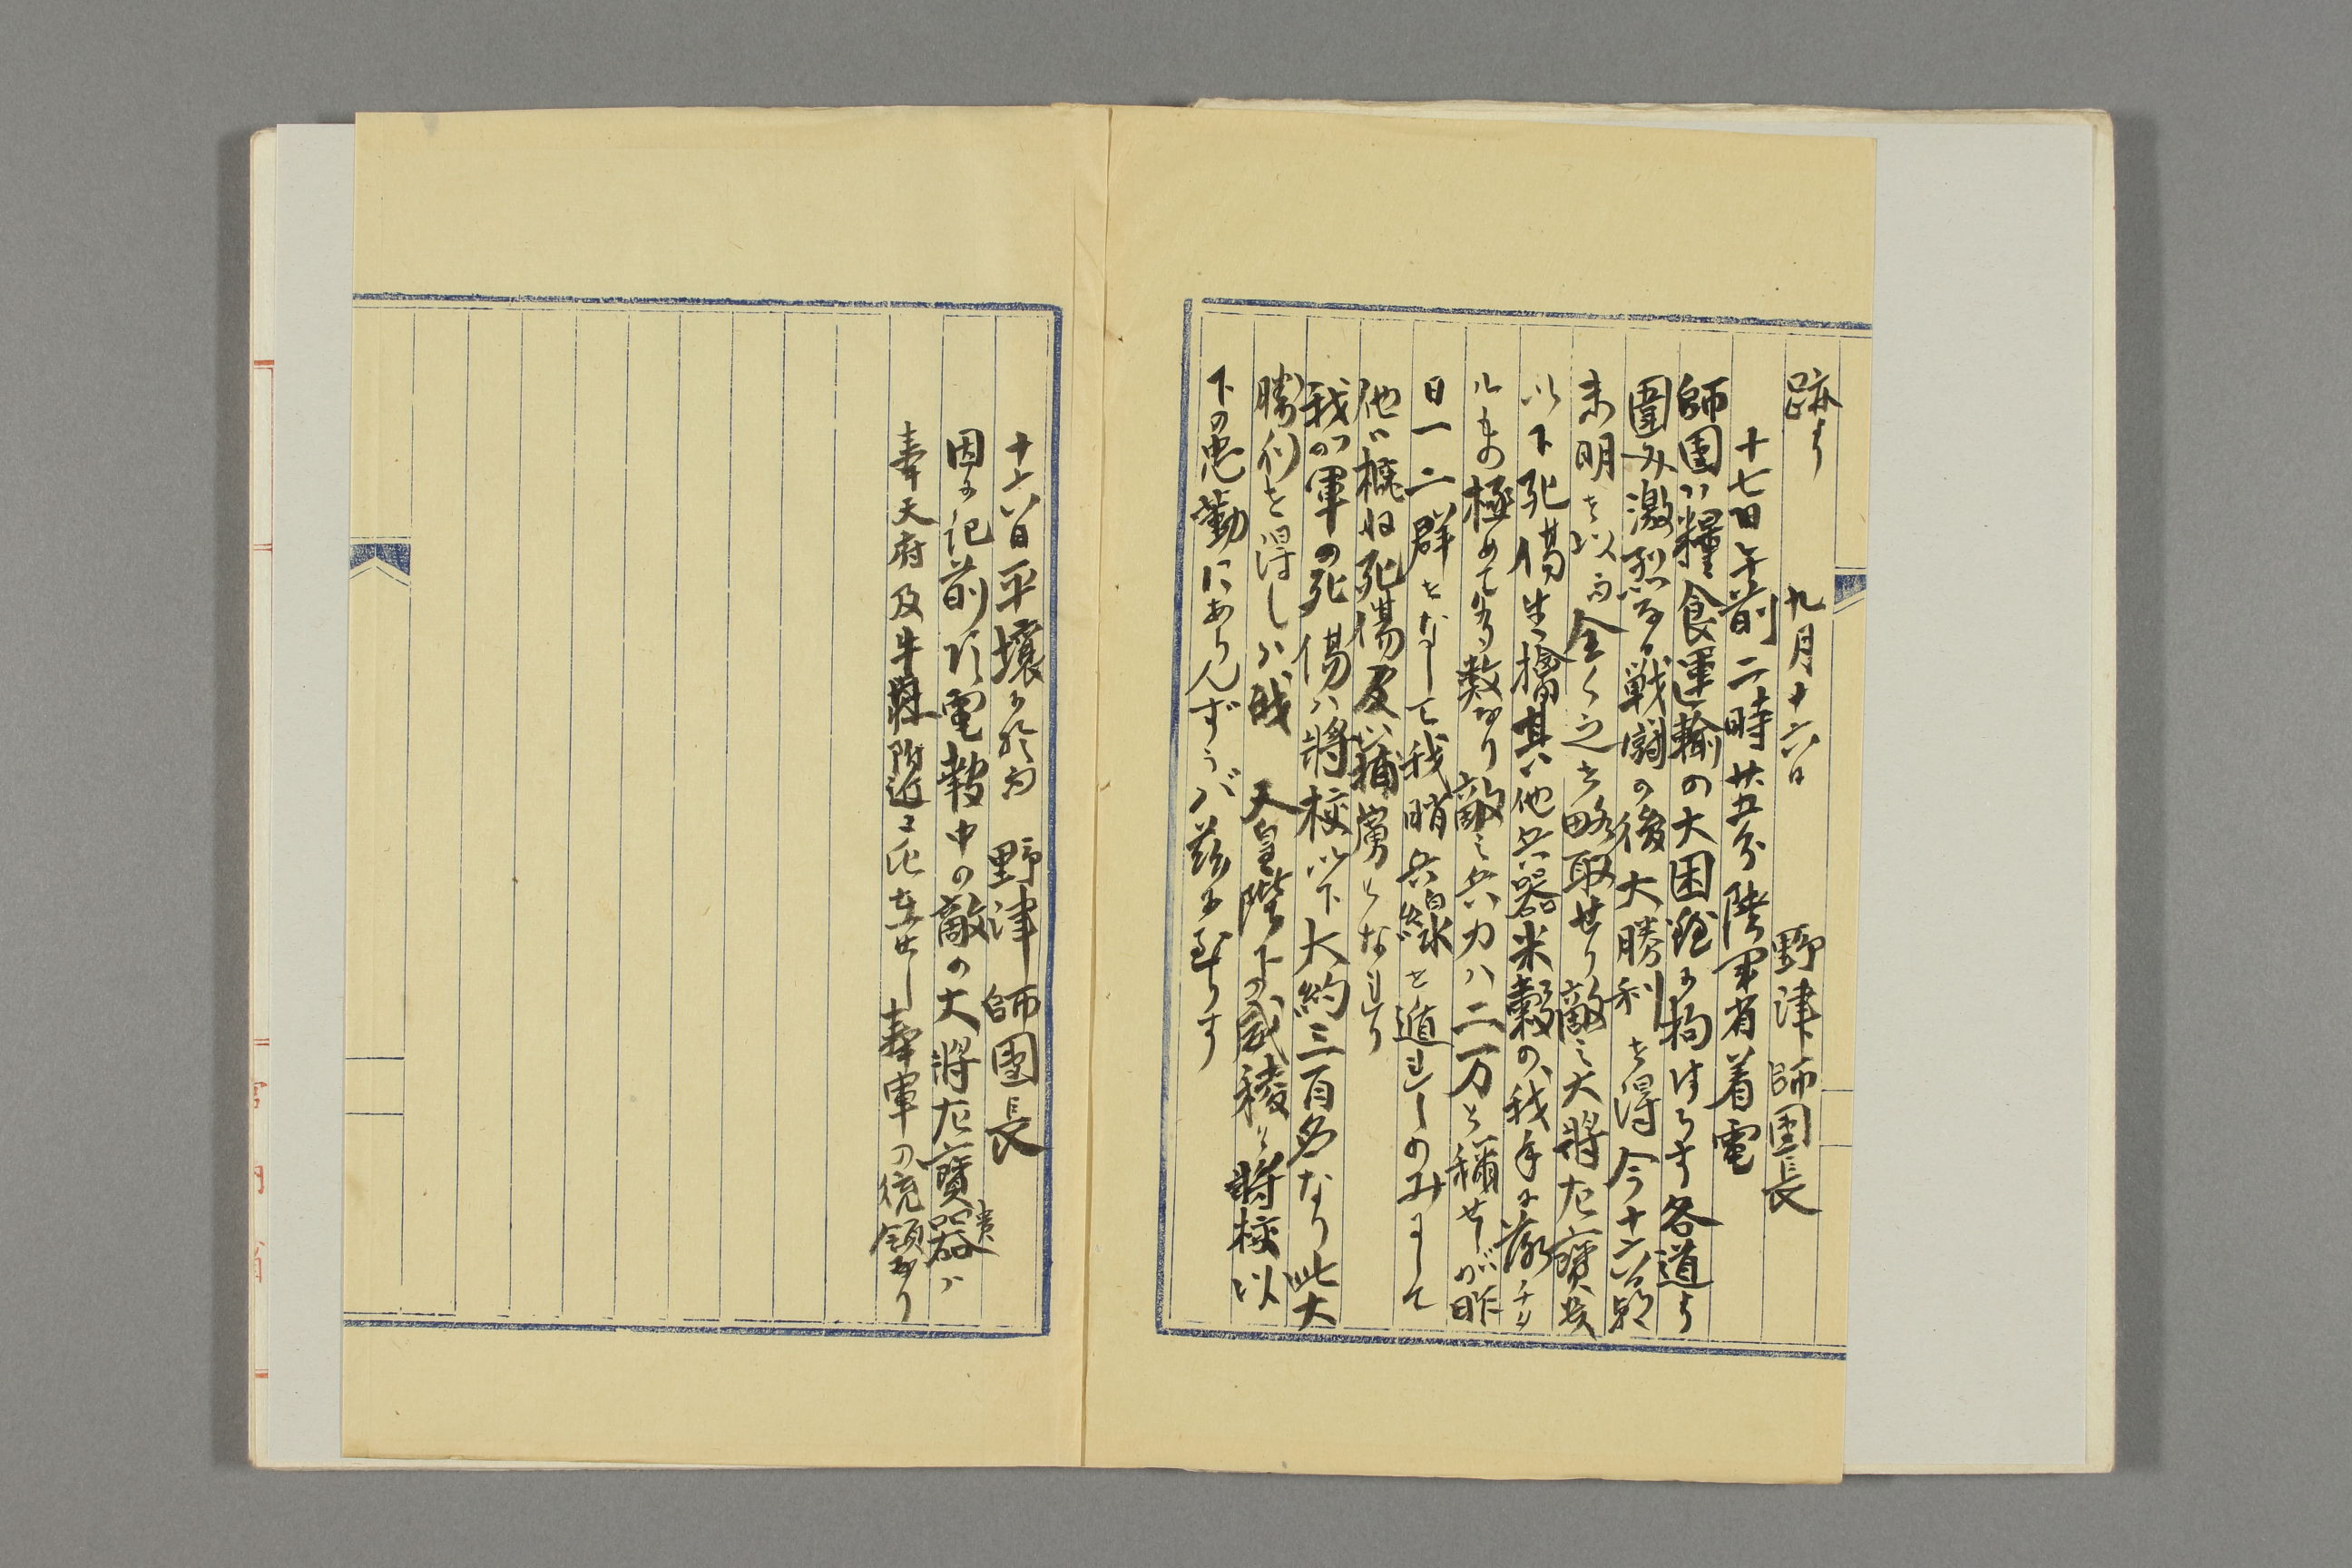 跡より
九月十六日　野津師団長
十七日午前二時廿五分陸軍省着電
師團ハ糧食運輸の大困難に拘はらす各道より
圍み激烈なる戦闘の後大勝利を得今十六日
未明を以而全く之を略取せり敵之大將左寶貴
以下死傷生擒其他兵器米穀の我手に落チ
ルもの極めて多数なり敵之兵力ハ二万と稱せしが昨
日一二群をなして我哨兵線を遁れしのみにして
他ハ概ね死傷及捕虜となれり
我が軍の死傷ハ將校以下大約三百名なり此大
勝利を得しハ我　天皇陛下の威稜と將校以
下の忠勤にあらんずうバ茲に至らす
十六日平壌に於而　野津師團長
因に記前項電報中の敵の大將左寶貴ハ
奉天府及牛荘附近に在せし奉軍の統領なり